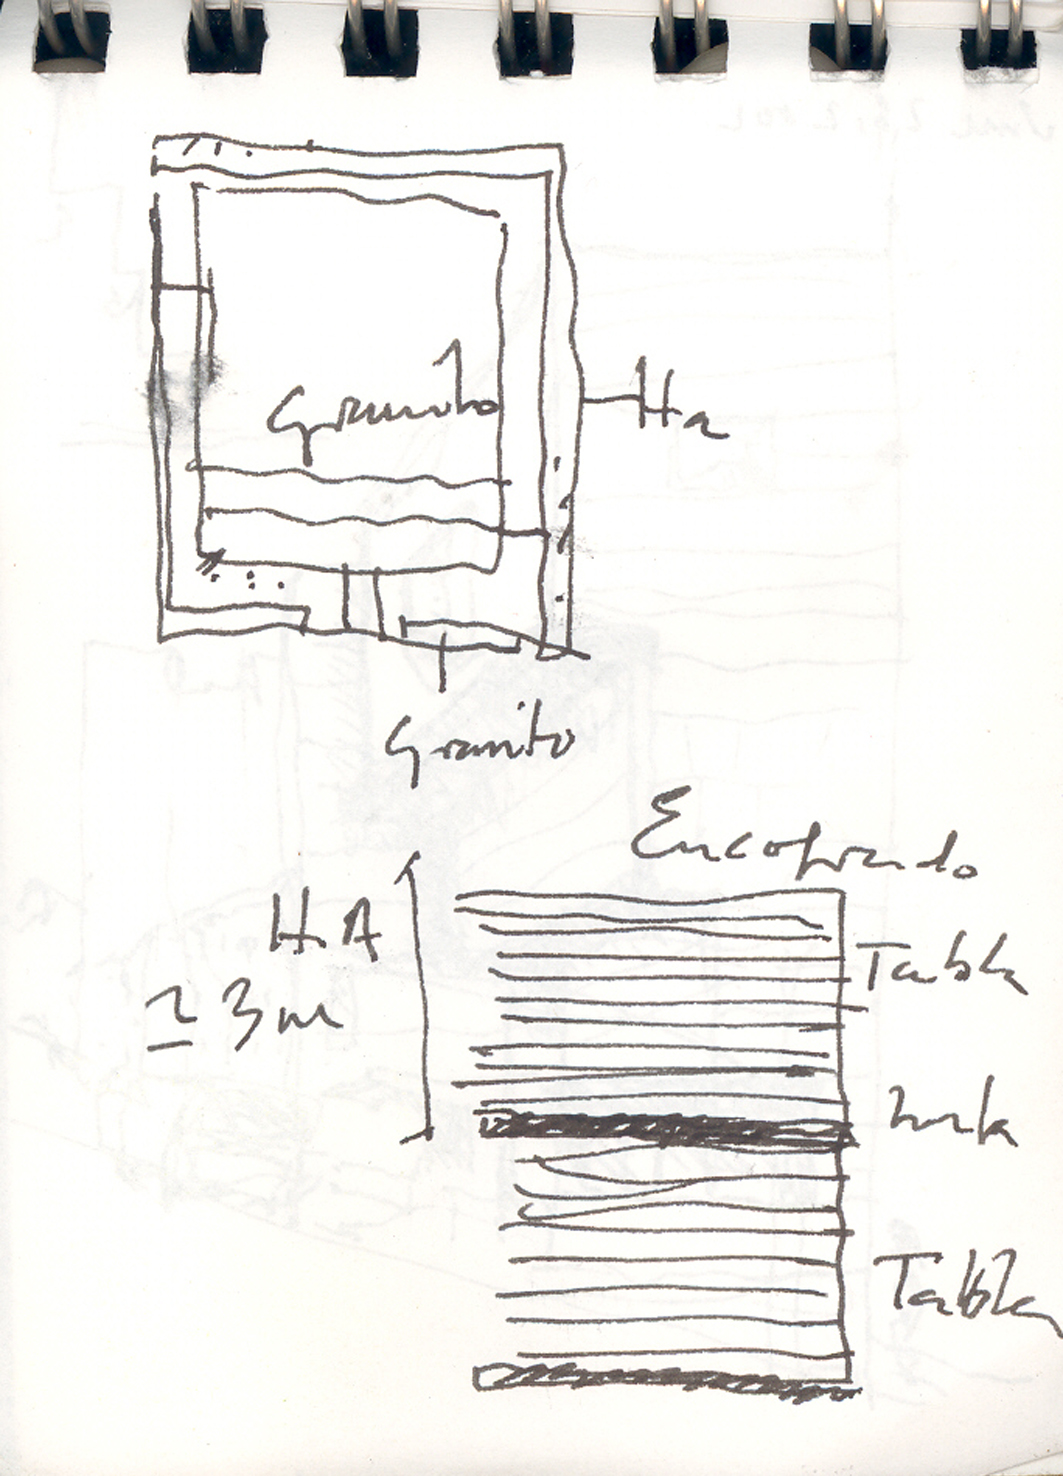 Granito
Ha
Granito
Encofrado
H.A
≃ 3m
Tabla
Tabla